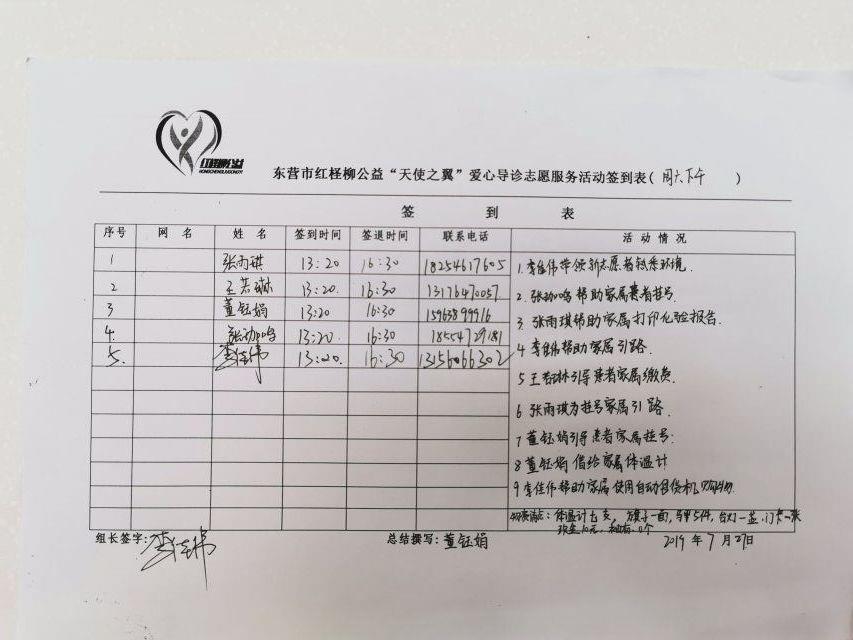 东营市红柽柳公益“天使之翼”爱心导诊志愿服务活动签到表(周六下午)
签 到 表
序号 网 名 姓 名 签到时间 签退时间 联系电话 活 动 情 况
1 张雨琪 13:20 16:30 18254617605
2 王若琳 13:20. 16:30 13176470057.
3 董钰娟 13:20 16:30 15963899916
4. 张劢鸣 13:20. 16:30 18554729181
5. 李佳伟 13:20. 16:30 13156066302
1.李佳伟带领新志愿者熟悉环境.
2.张劢鸣帮助家属患者挂号.
3 张雨琪帮助家属打印化验报告.
4 李佳伟帮助家属引路.
5 王若琳引导患者家属缴费.
6 张雨琪为挂号家属引路.
7 董钰娟引导患者家属挂号.
8 董钰娟 借给家属体温计
9 李佳伟帮助家属使用自动售货机购物.
体温计七支, 旗子一面, 马甲5件, 台灯一盏. 门卡一张
押金10元.
组长签字: 李佳伟 总结撰写: 董钰娟 2019 年 7 月 27日